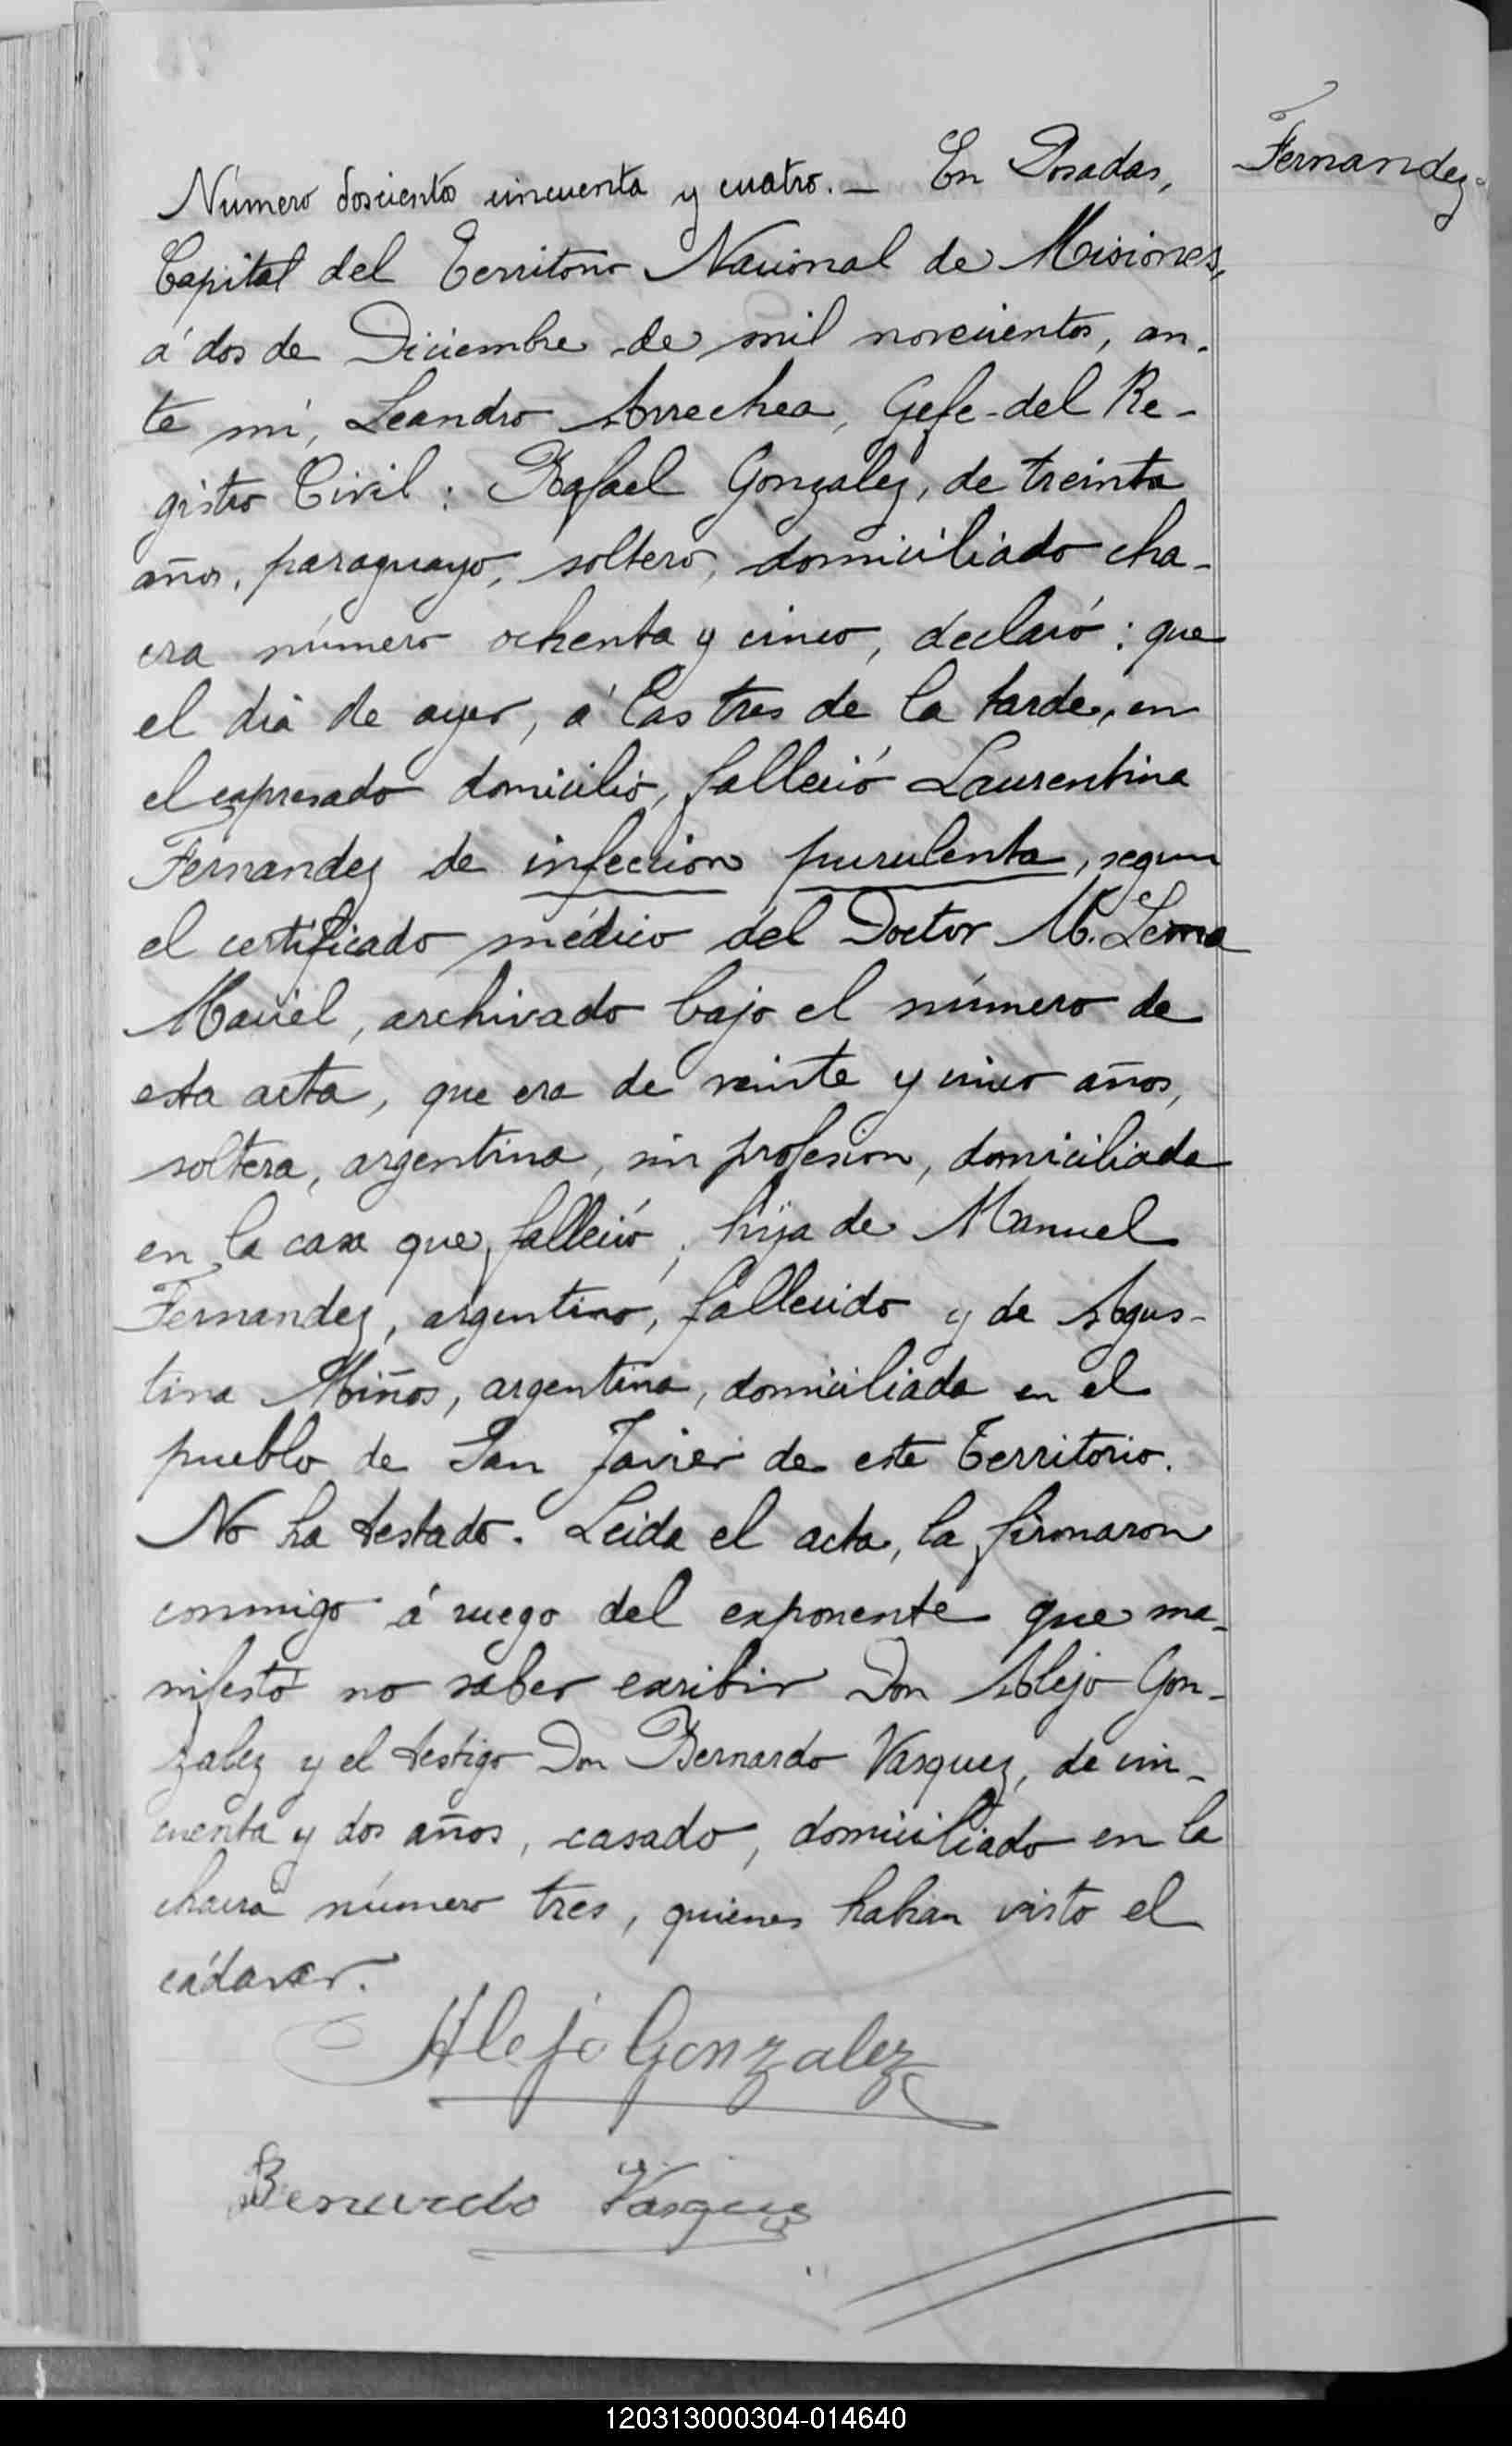 Fernandez
Número doscientos cincuenta y cuatro. — En Posadas,
Capital del Territorio Nacional de Misiones,
á dos de Diciembre de mil novecientos, an-
te mí, Leandro Arrechea, Gefe del Re-
gistro Civil: Rafael Gonzalez, de treinta
años, paraguayo, soltero, domiciliado cha-
cra número ochenta y cinco, declaró: que
el dia de ayer, á las tres de la tarde, en
el expresado domicilio, falleció Laurentina
Fernandez de infeccion purulenta, segun
el certificado médico del Doctor M. Lema
Maciel, archivado bajo el número de
esta acta, que era de veinte y cinco años,
soltera, argentina, sin profesion, domiciliada
en la casa que falleció, hija de Manuel
Fernandez, argentino, fallecido y de Agus-
tina Miños, argentina, domiciliada en el
pueblo de San Javier de este Territorio.
No ha testado. Leida el acta, la firmaron
conmigo á ruego del exponente que ma-
nifestó no saber escribir Don Alejo Gon-
zalez y el testigo Don Bernardo Vasquez, de cin-
cuenta y dos años, casado, domiciliado en la
chacra número tres, quienes habian visto el
cádaver.
Alejo Gonzalez
Bernardo Vasquez
120313000304-014640